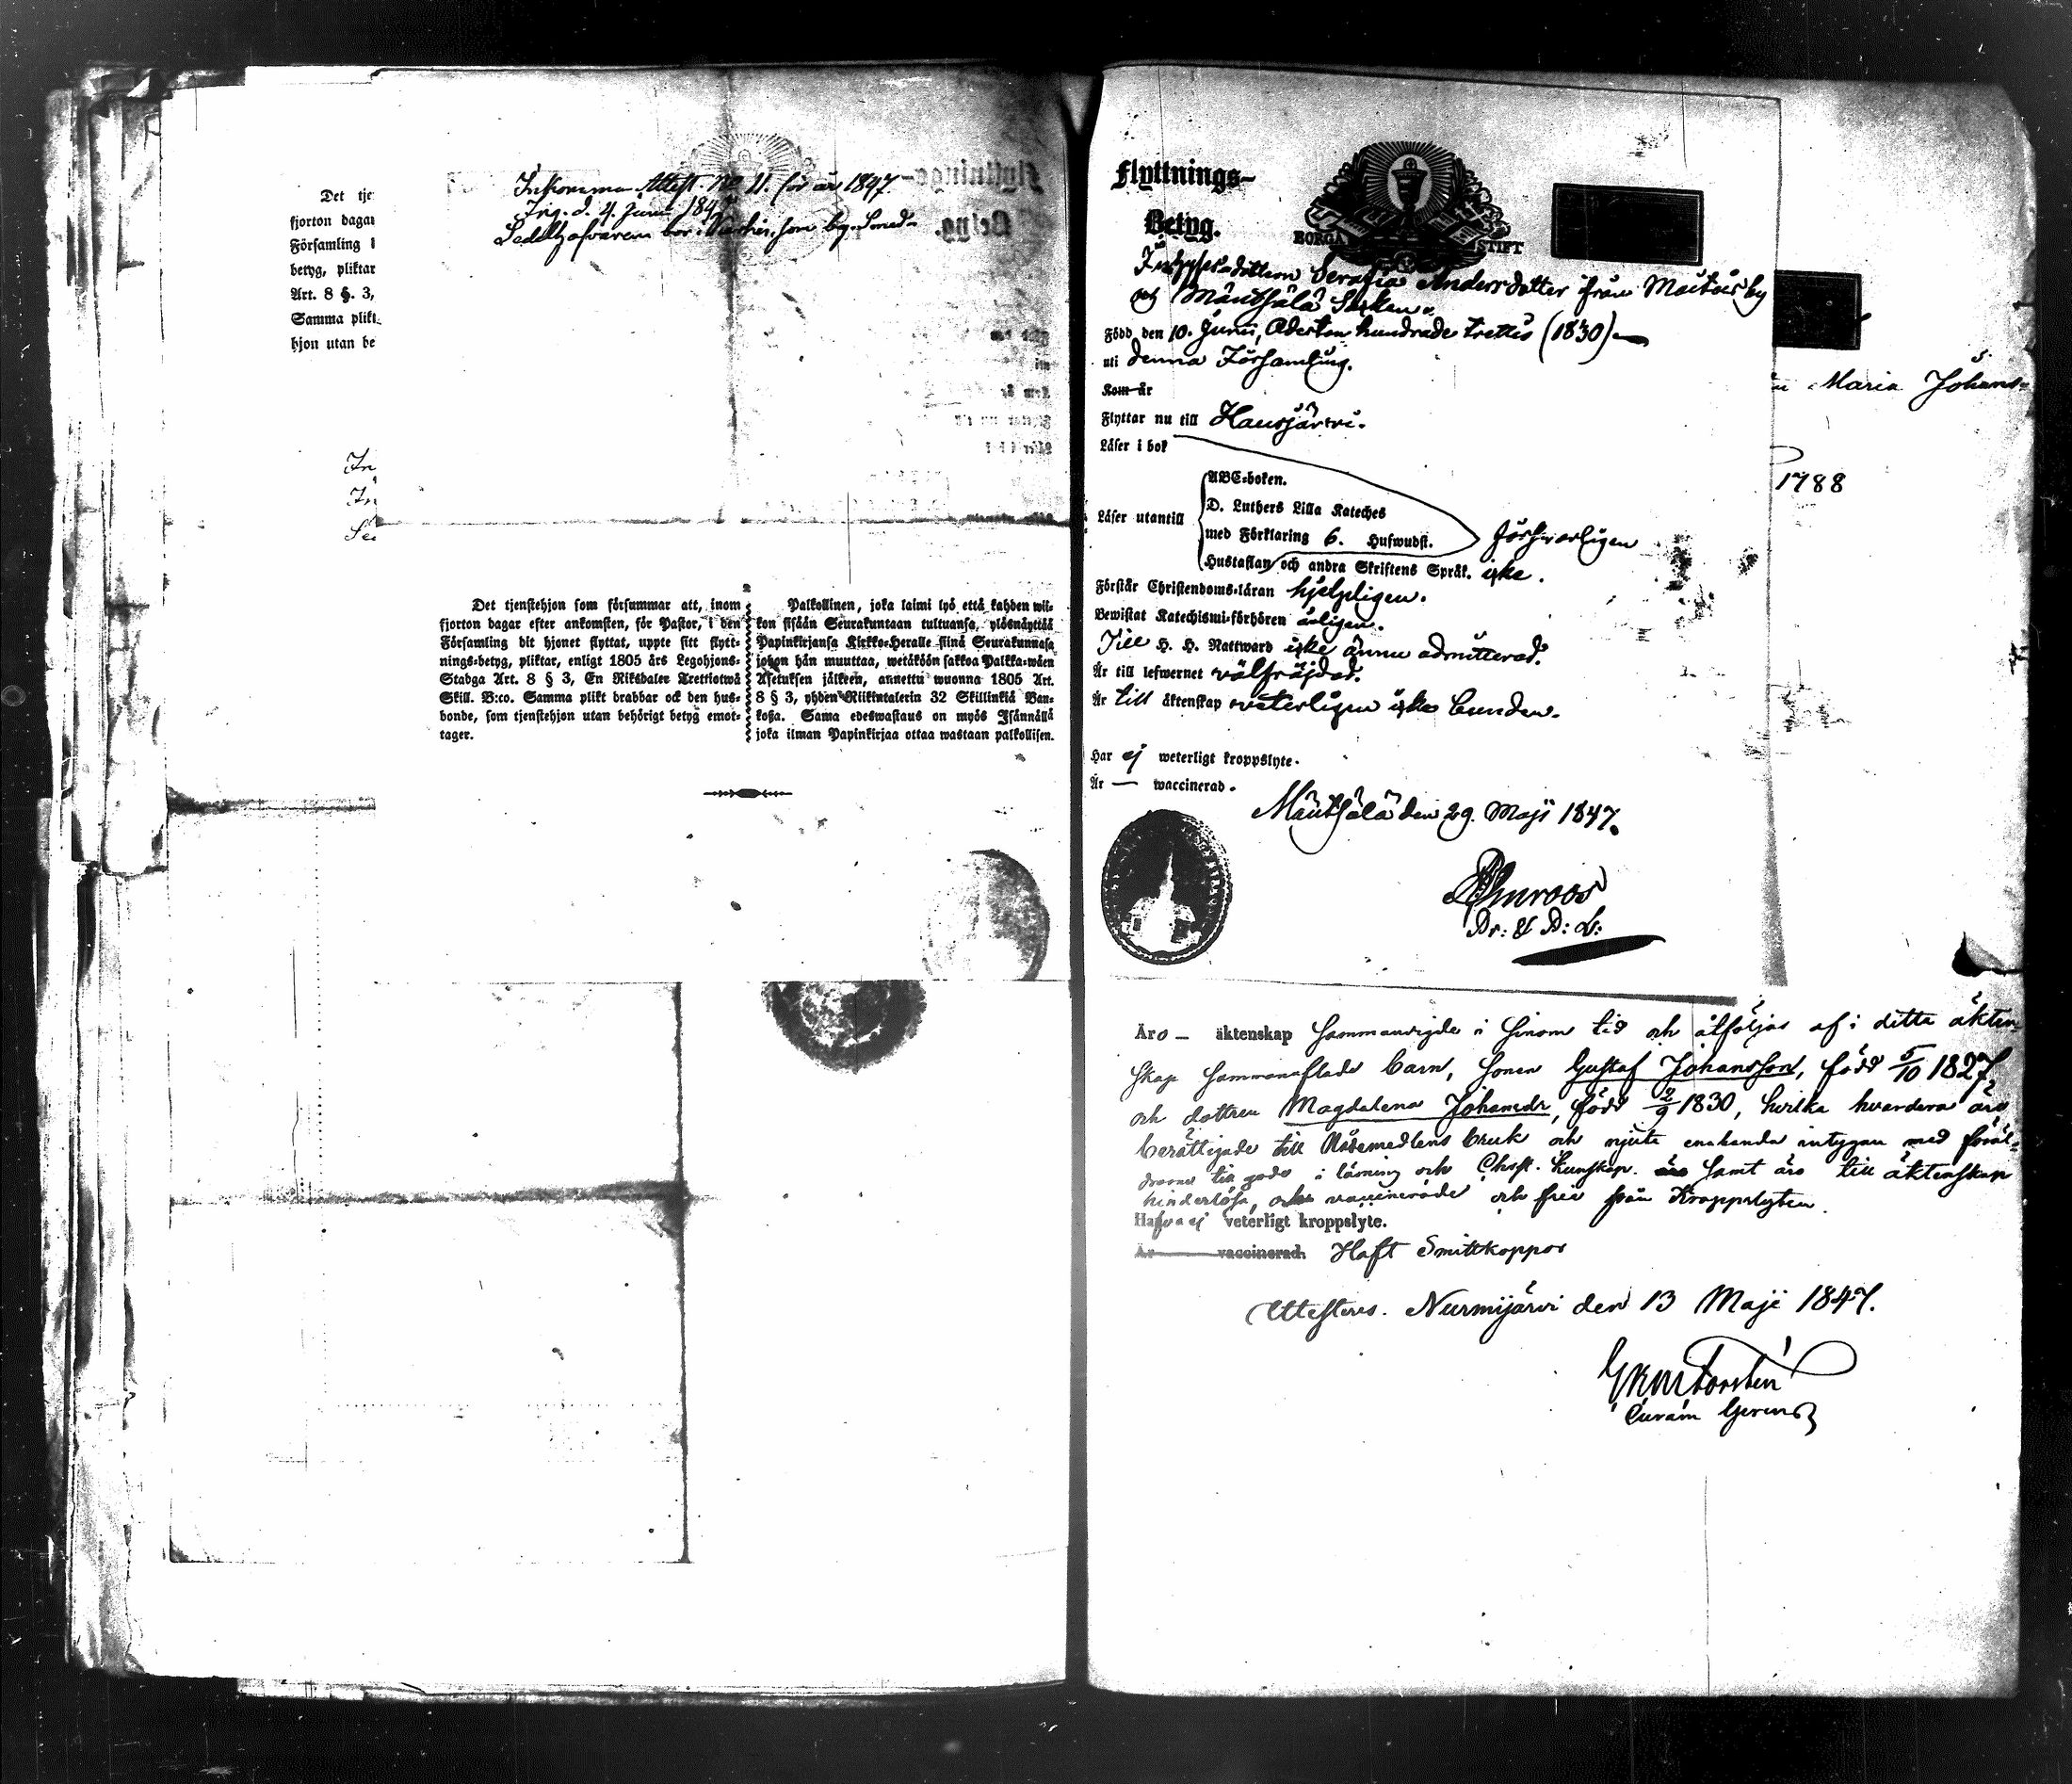 Det tje
fjorton dagar
Församling
betyg, pliktar
Art. 8 §. 3,
Samma plikt
hjon utan be
In
In
Sed
Inkomna Attest. No 21. för år 1847.
Sedelhafvaren bor i
Det tjenstehjon som försummar att, inom
fjorton dagar efter ankomsten, för Pastor, i den
Församling dit hjonet flyttat, uppte sitt flytt-
nings-betyg, pliktar, enligt 1805 års Legohjons-
Stadga Art. 8 § 3, En Riksdaler Trettiotwå
Skill. B:co. Samma plikt drabbar ock den hus-
bonde, som tjenstehjon utan behörigt betyg emot-
tager.
Palkollinen, joka laimi lyö että kahden wii-
kon sisään Seurakuntaan tultuansa, ylösnäyttää
Papinkirjansa Kirkko-Heralle siinä Seurakunnasa
johon hän muuttaa, wetäköön sakkoa Palkka-wäen
Asetuksen jälkeen, annettu wuonna 1805 Art.
8 § 3, yhden Riikintalerin 32 Skillinkiä Ban-
koßa. Sama edeswastaus on myös Isännällä
joka ilman Papinkirjaa ottaa wastaan palkollisen.
Flyttnings-
Betyg.
BORGÅ STIFT
dottern Serafia Andersdotter från by
och Mäntsälä Socken.
Född den 10. Junii, Aderton hundrade trettio (1830)
uti denna Församling.
Kom år
Flyttar nu till Hausjärvi.
Läser i bok
ABC-boken.
Läser utantill
D. Luthers Lilla Kateches
med Förklaring 6. Hufwudst.
försvarligen
Hustaflan och andra Skriftens Språk. icke.
Förstår Christendoms-läran hjelpligen.
Bewistat Katechismi-förhören årligen.
Till H. H. Nattward icke ännu admitterad.
Är till lefwernet välfräjdad.
Är till äktenskap veterligen icke bunden.
Har ej weterligt kroppslyte.
Är — waccinerad.
Mäntsälä den 29. Maji 1847.
Maria Johans-
1788
Äro – äktenskap sammanvigde i sinom tid och åtföljas af i detta äkten-
skap sammanaflade barn, sonen Gustaf Johansson, född 5/10 1827,
och dottren Magdalena Johansdr, född 2/9 1830, hvilka hvardera äro
berättigade till Nådemedlens bruk och njuta enahanda intygan med föräl-
drarne till godo i läsning och Chrst. kunskap. samt äro till äktenskap
hinderlösa, vaccinerade och frie från Kroppslyten.
Hafva ej veterligt kroppslyte.
Är vaccinerad. Haft Smittkoppor
Attesteras. Nurmijärvi den 13 Maji 1847.
Curam Gerens